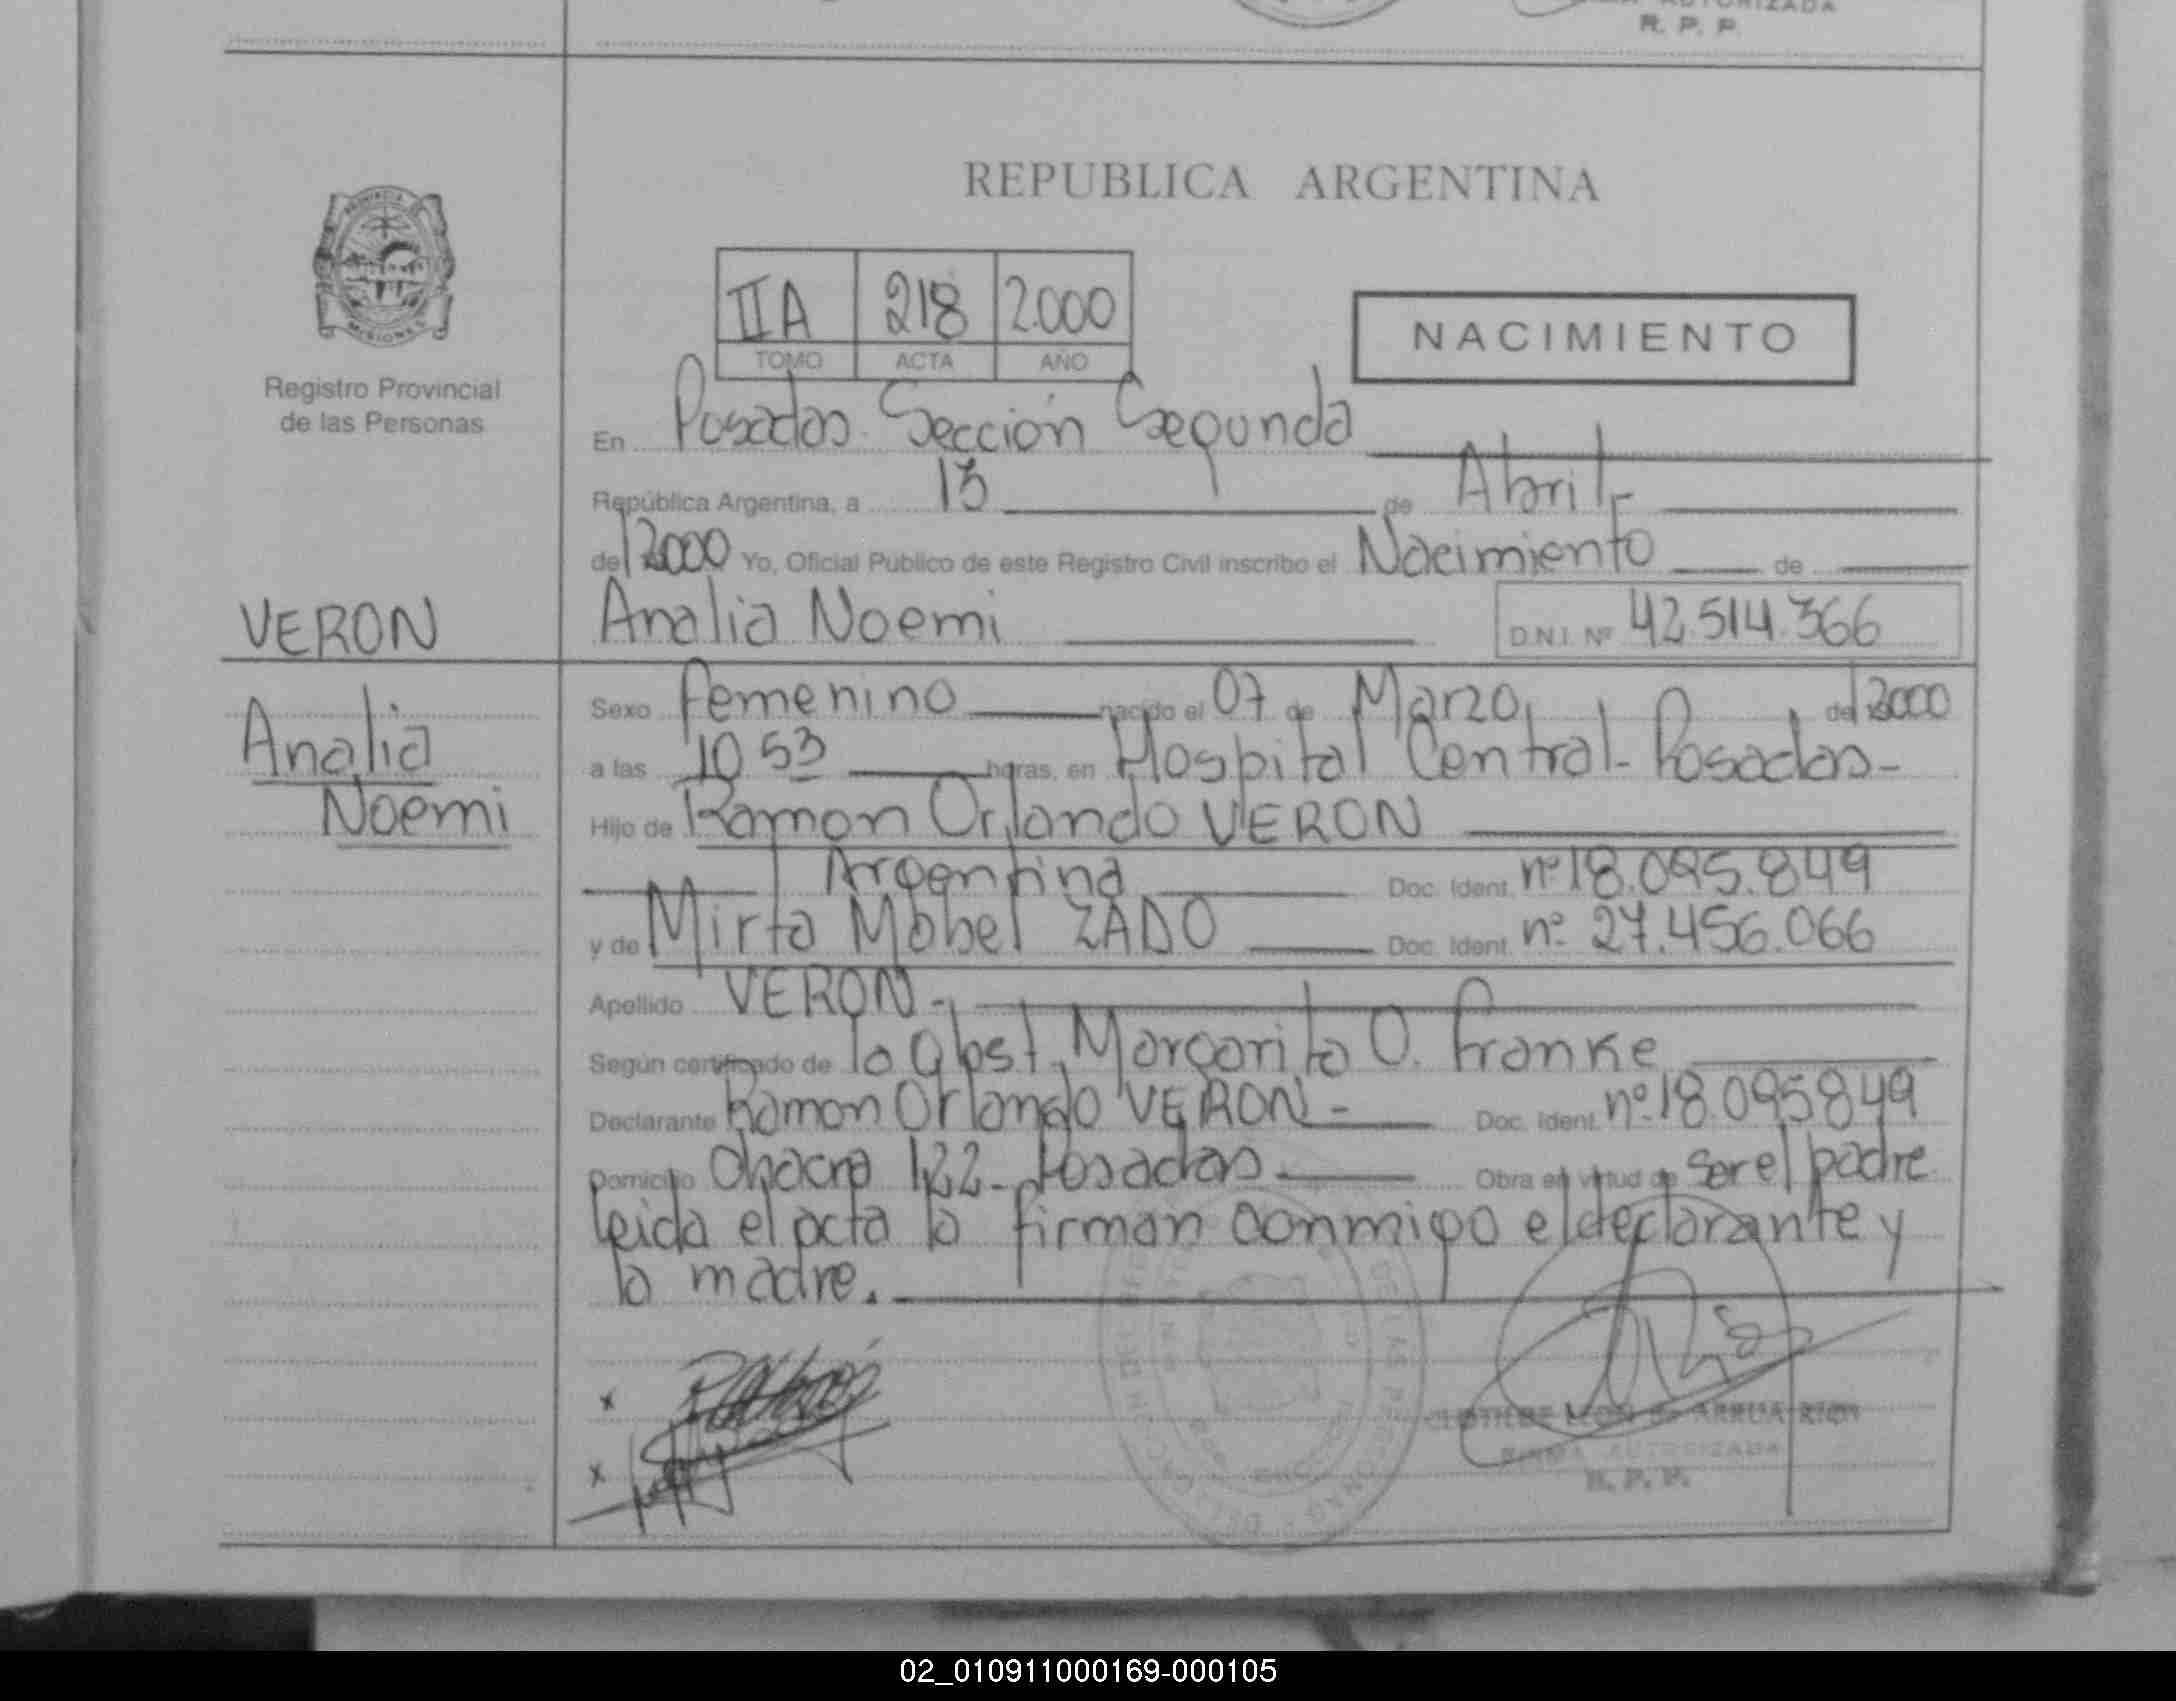 AUTORIZADA
R. P. P.
REPUBLICA ARGENTINA
MISIONES
Registro Provincial
de las Personas
IIA 218 2.000
TOMO ACTA AÑO
NACIMIENTO
En Posadas. Sección Segunda
República Argentina, a 13 de Abril
de 2000 Yo, Oficial Público de este Registro Civil inscribo el Nacimiento de
VERON Analia Noemi D.N.I. Nº 42.514.366
Analia
Noemi
Sexo femenino nacido el 07 de Marzo de 2000
a las 10 53 horas, en Hospital Central- Posadas-
Hijo de Ramon Orlando VERON
Argentina Doc. Ident. nº 18.095.849
y de Mirta Mabel ZADO Doc. Ident. nº 27.456.066
Apellido VERON.-
Según certificado de la Obst. Margarita O. Franke
Declarante Ramon Orlando VERON - Doc. Ident. nº 18.095849
Domicilio Chacra 122- Posadas Obra en virtud de ser el padre
leida el acta la firman conmigo el declarante y
la madre.
x
x
CLOTILDE LEON de ARRUA RIOS
FIRMA AUTORIZADA
R. P. P.
02_010911000169-000105